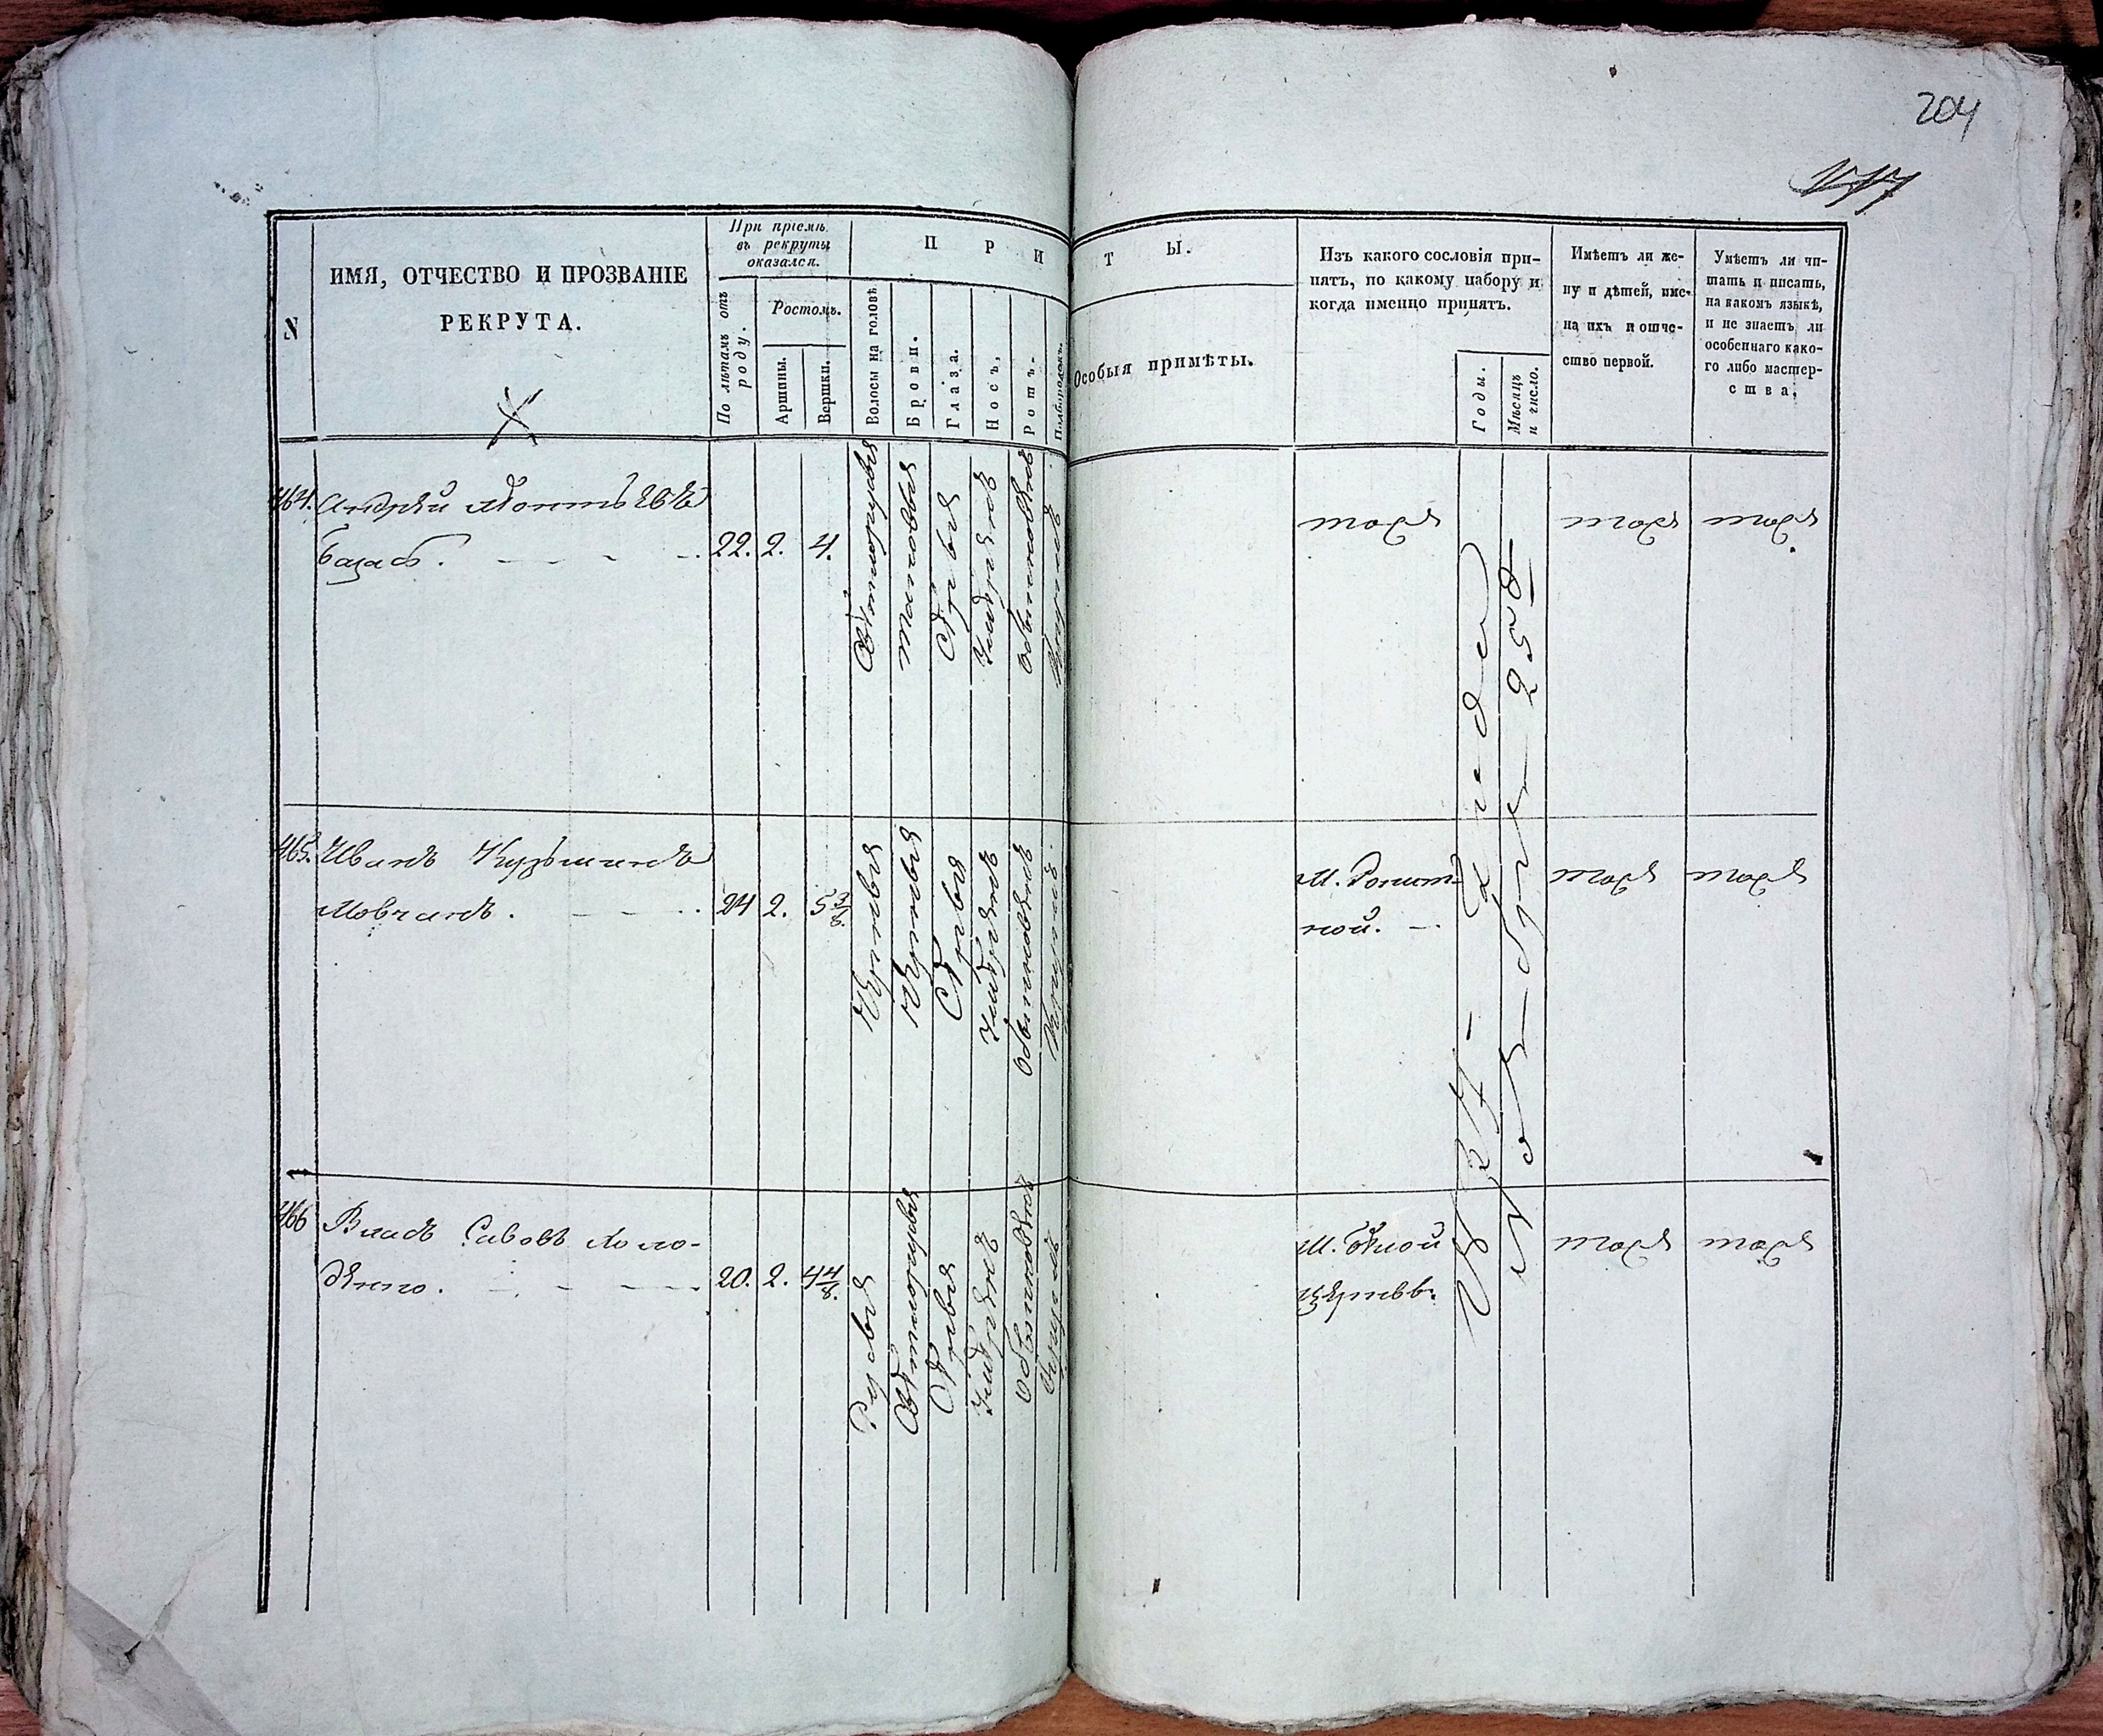 204
П Р И
Т Ы.
N
ИМЯ, ОТЧЕСТВО И ПРОЗВАНІЕ
РЕКРУТА.
При пріемѣ
въ рекруты
оказался.
По лѣтамъ отъ
роду.
Ростомъ.
Аршины.
Вершки.
Волосы на головѣ
Брови.
Глаза.
Носъ,
Ротъ.
Подбородокъ.
Особыя примѣты.
Изъ какого сословія при-
нятъ, по какому набору и
когда именно принятъ.
Годы.
Мѣсяцъ
и число.
Имѣетъ ли же-
ну и дѣтей, име-
на ихъ и отче-
ство первой.
Умѣетъ ли чи-
тать и писать,
на какомъ языкѣ,
и не знаетъ ли
особеннаго како-
го либо мастер-
ства,
464.
Андрей Леонтьевъ
22. 2. 4.
Свѣтлорусыя
таковыя
Сѣрыя
Умѣренъ
обыкновенъ
тоже
тоже
тоже
465.
Иванъ Кузьминъ
Мовчанъ.
24 2. 5 3/8.
Умѣренъ
Обыкновенъ
М. Ракит-
ной.
тоже
тоже
466
Власъ Савовъ Коло-
20. 2. 4 4/8.
Русыя
Свѣтлорусыя
Сѣрыя
Умѣренъ
Обыкновенъ
М. Бѣлой
церквы.
тоже
тоже
1834 года
Ноября 25 д